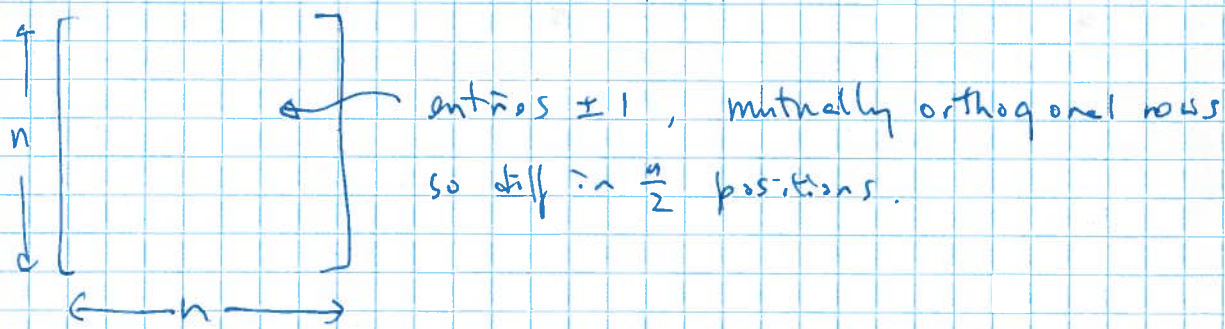 entries ±1, mutually orthogonal rows
n
so diff in n/2 positions.
n